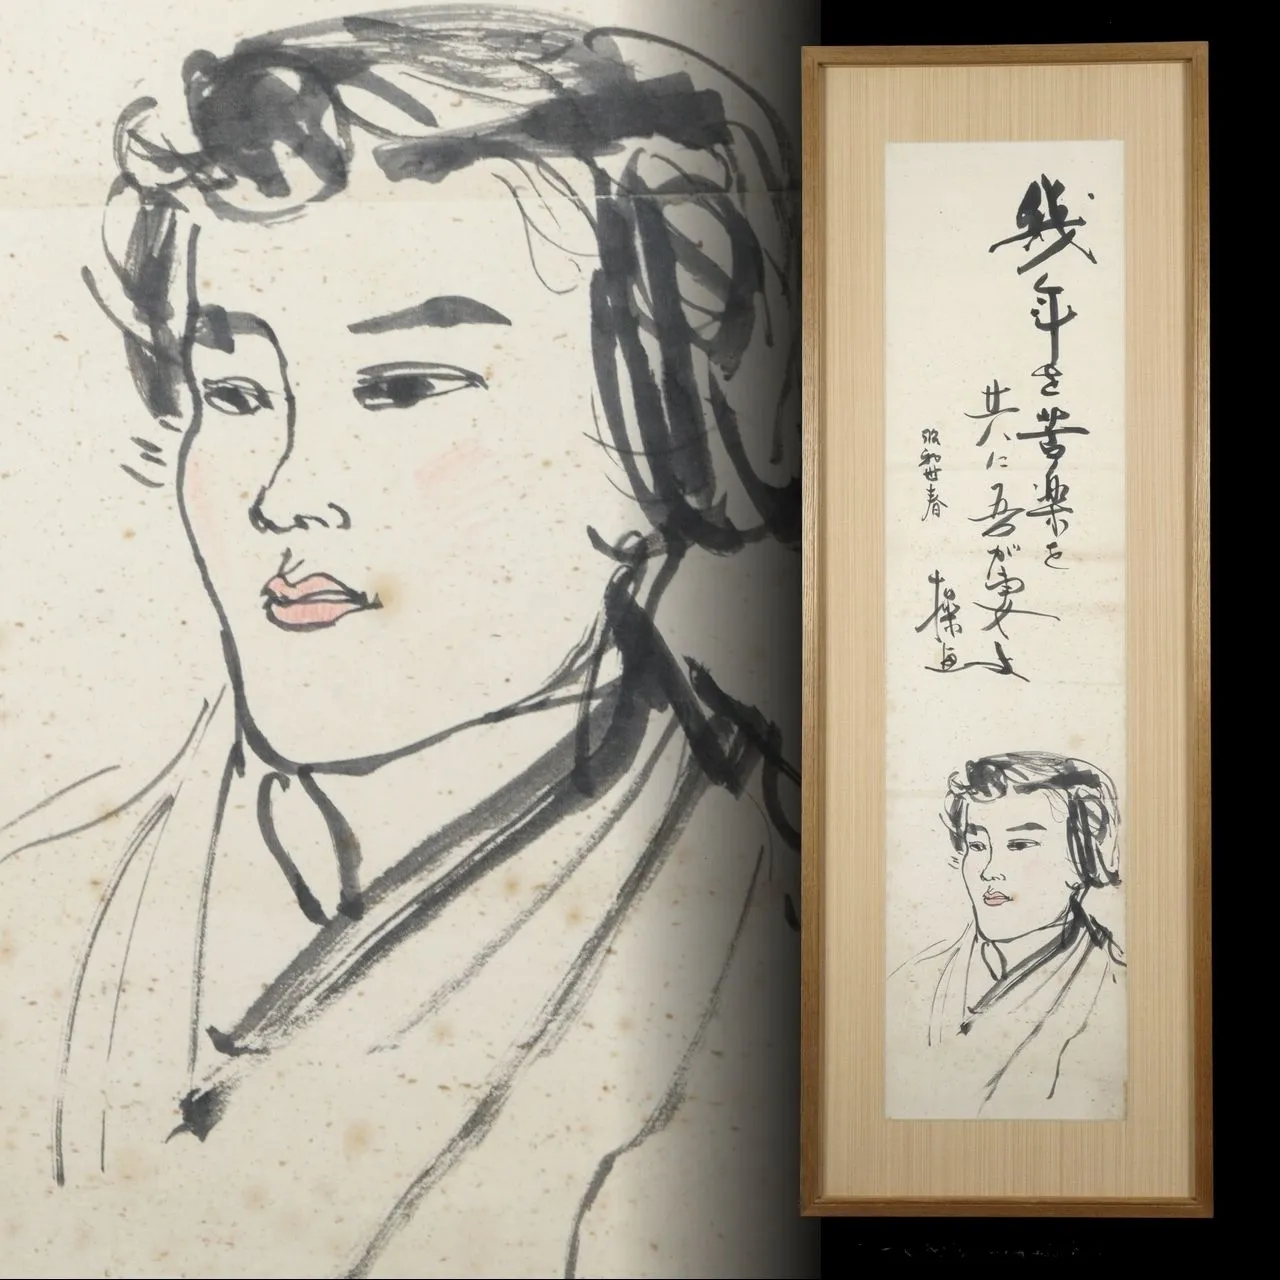 幾年を苦楽を
共に吾が妻よ
昭和廿春
操画